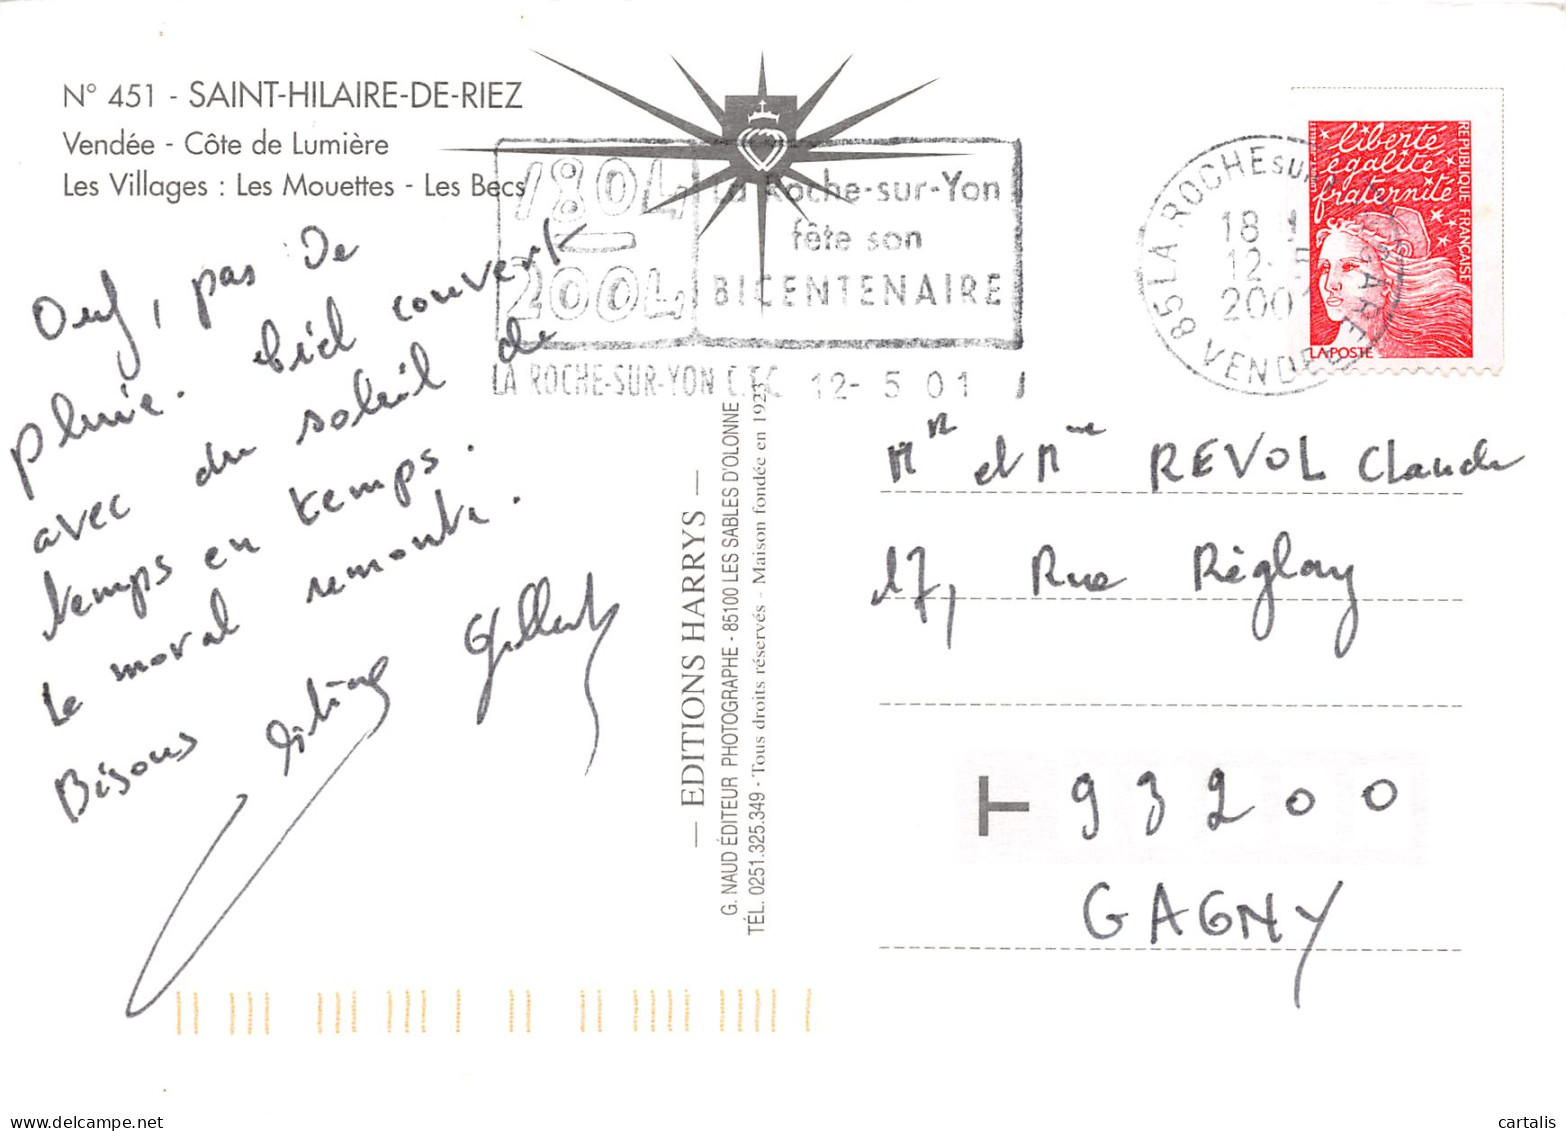 N° 451 - SAINT-HILAIRE-DE-RIEZ
Vendée - Côte de Lumière
Les Villages : Les Mouettes - Les Becs
1804
2004
La Roche-sur-Yon
fête son
BICENTENAIRE
LA ROCHE-SUR-YON CTC 12- 5 01
85 LA ROCHE SUR
VENDEE
18
12-5
200
liberté
égalité
fraternité
REPUBLIQUE FRANÇAISE
LA POSTE
Ouf, pas de
pluie. Ciel couvert
avec du soleil de
temps en temps.
Le moral remonte.
Bisous
— EDITIONS HARRYS —
G. NAUD ÉDITEUR PHOTOGRAPHE - 85100 LES SABLES D'OLONNE
TÉL. 0251.325.349 - Tous droits réservés - Maison fondée en 1923
Mr et Mme REVOL Claude
17, Rue Réglay
93200
GAGNY
cartalis